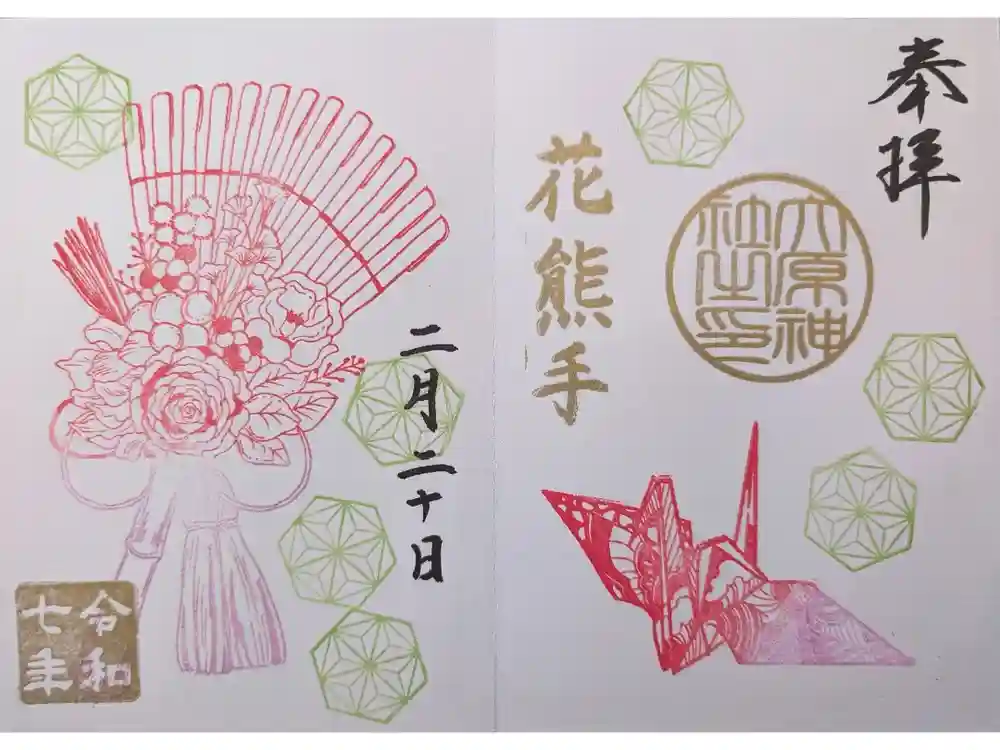 奉拝
六原神
社之印
花熊手
二月二十日
令和
七年